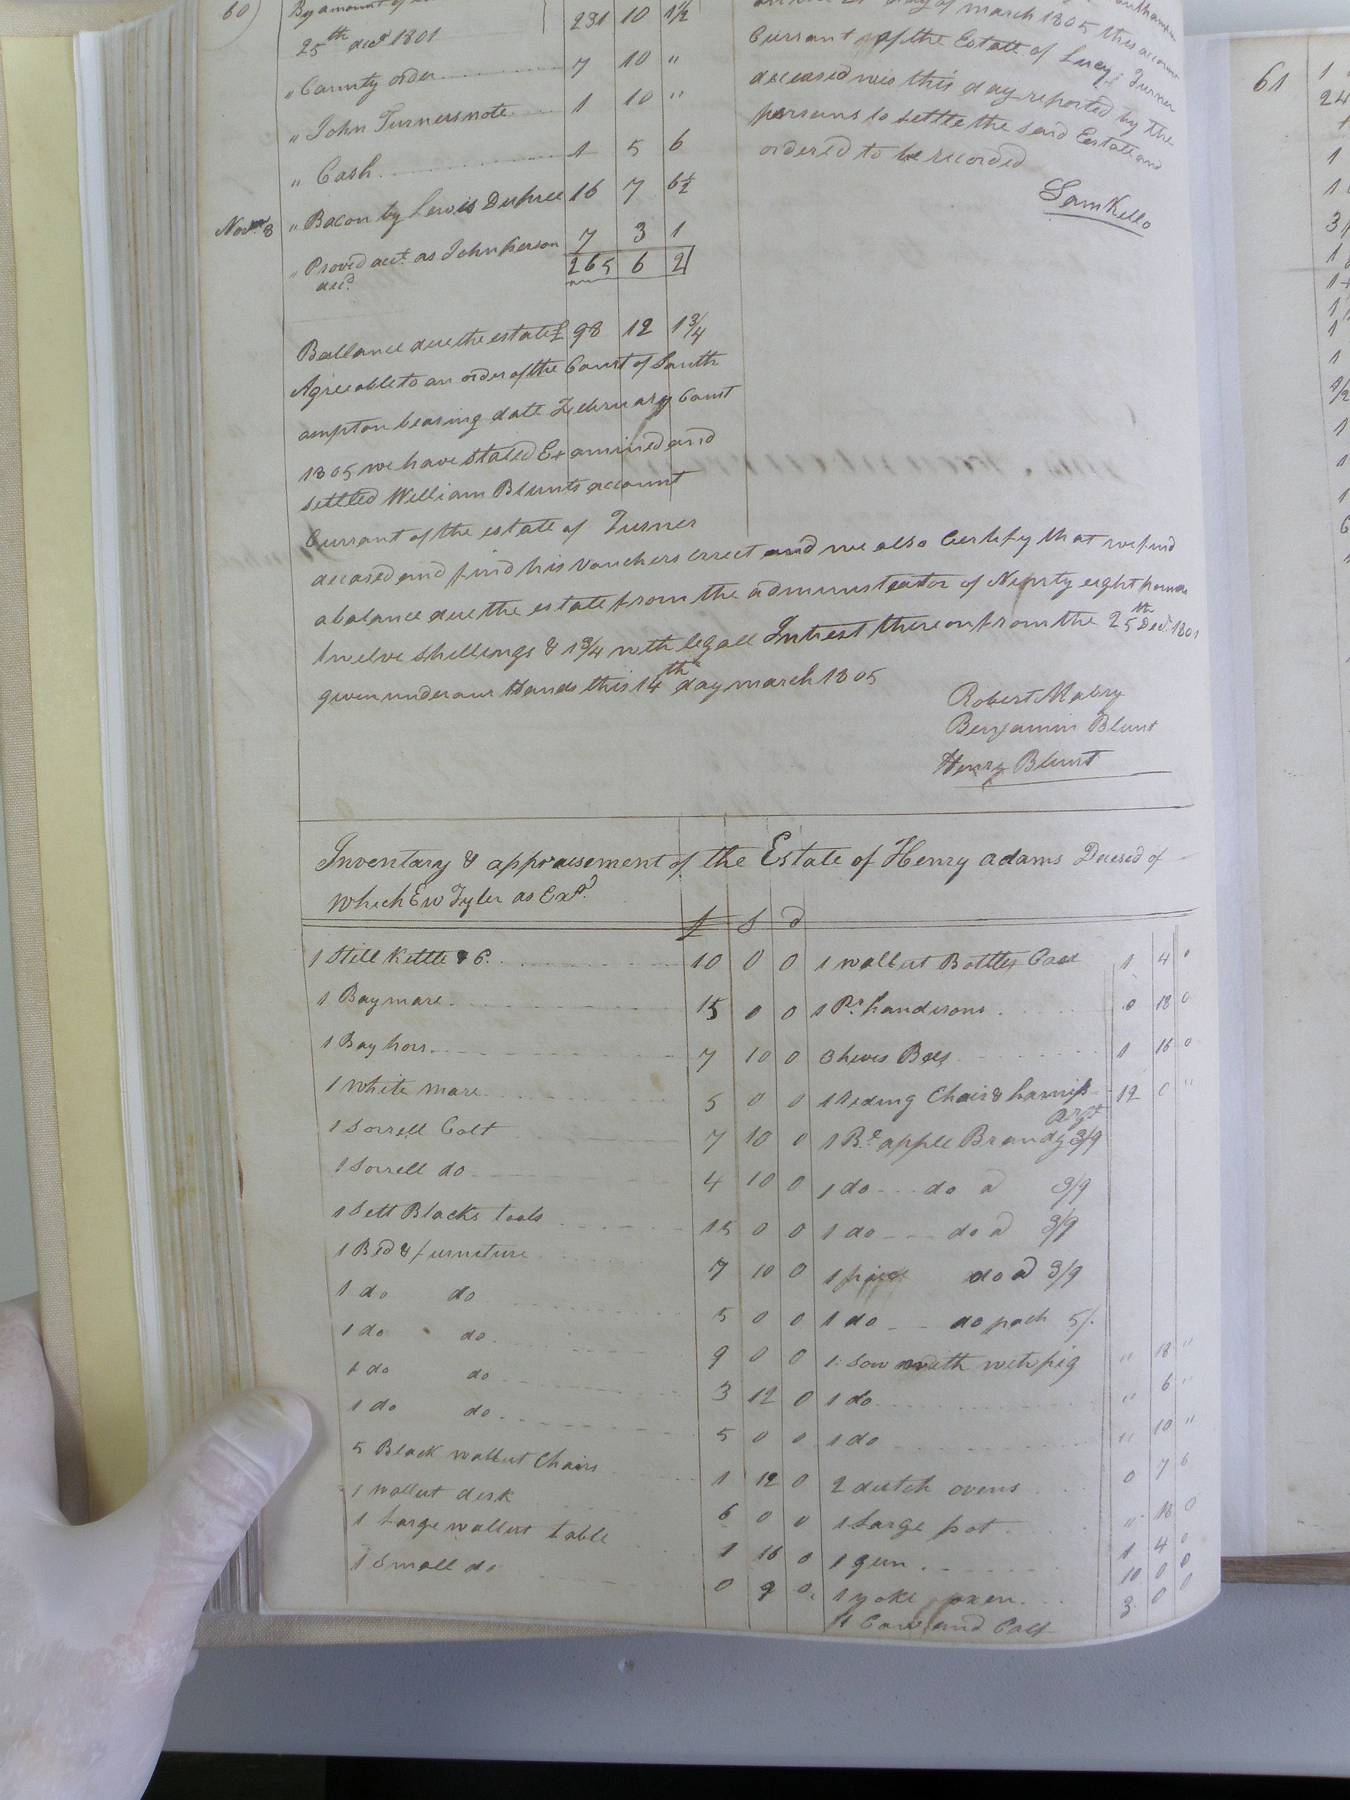 60)
By amount of
25th decr 1801 231 10 1½
" County order 7 10 "
" John Turners note 1 10 "
" Cash 1 5 6
Novr 8 " Bacon by Lewis Dupree 16 7 6½
" Proved acct. as John 7 3 1
decd. 265 6 2
Ballance due the estate £ 98 12 1¾
Agreeable to an order of the Court of South
ampton bearing date February Court
1805 we have stated Examined and
settled William Blunts account
Currant of the estate of Turner
deceased and find his vouchers errect and we also Certify that we find
a balance due the estate from the administeator of Ninty eight pounds
twelve shillings & 1¾ with legall Intrest thereon from the 25th Decr. 1801
given under our Hands this 14th day march 1805
Robert Mabry
Benjamin Blunt
Henry Blunt
day of march 1805 this account
Currant of the Estate of Lucy Turner
deceased was this day reported by the
persons to settle the said Estate and
ordered to be recorded
Sam Kello
Inventary & appraisement of the Estate of Henry adams Decesed of
which Ew Tyler as Exr.
£ S d
1 Still Kettle & C. 10 0 0
1 Bay mare 15 0 0
1 Bay hors 7 10 0
1 white mare 5 0 0
1 Sorrell Colt 7 10 0
1 Sorrell do 4 10 0
1 Sett Blacks tools 15 0 0
1 Bed & furniture 7 10 0
1 do do 5 0 0
1 do do 9 0 0
1 do do 3 12 0
1 do do 5 0 0
5 Black wallnut Chairs 1 12 0
1 wallut desk 6 0 0
1 Large wallnut table 1 16 0
1 Small do 0 9 0
1 wallnut Bottle Case 1 4 0
1 Pr. handirons 0 18 0
3 hives Bees 1 16 0
1 Riding Chair & harniss 12 0 "
1 Bl. apple Brandy 3/9
1 do do a 3/9
1 do do a 3/9
1 do a 3/9
1 do do peach 5/.
1 Sow with pig " 18 "
1 do " 6 "
1 do " 10 "
2 dutch ovens 0 7 6
1 Large pot " 18 0
1 gun 1 4 0
1 yoke oxen 10 0 0
1 Cow and Calf 3 0 0
61